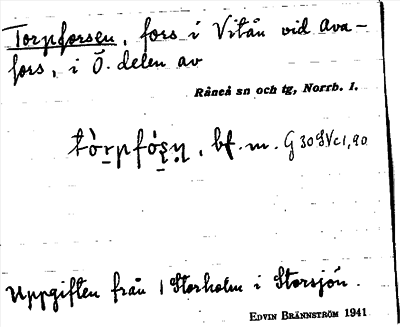 Torpforsen, fors i Vitån vid Ava-
fors, i Ö. delen av
Råneå sn och tg, Norrb. l.
tò̱rpfó̱ṣṇ, bf. m. G 30 SVc1,90
Uppgiften från 1 Storholm i Storsjön.
EDVIN BRÄNNSTRÖM 1941